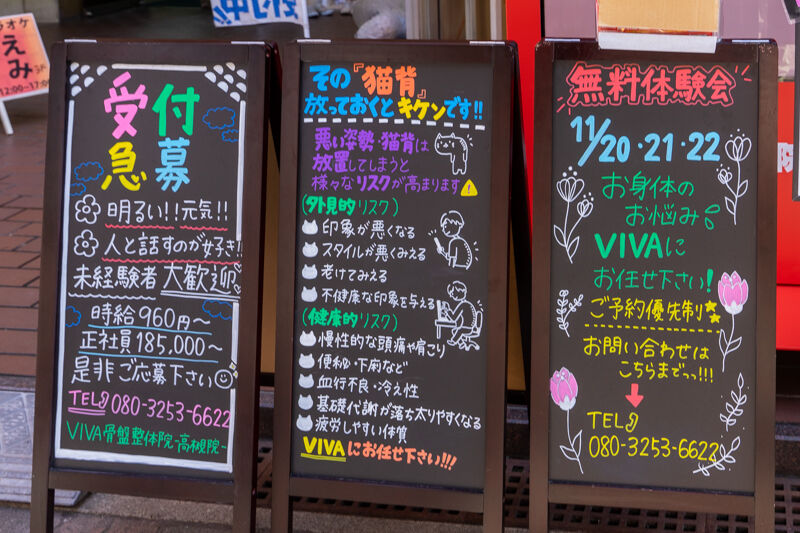 えみ
12:00〜17:00
受付
急募
明るい!!元気!!
人と話すのが好き!!
未経験者 大歓迎
時給960円〜
正社員185,000〜
是非ご応募下さい
TEL 080-3253-6622
VIVA骨盤整体院-高槻院-
その『猫背』
放っておくとキケンです!!
悪い姿勢・猫背は
放置してしまうと
様々なリスクが高まります
(外見的リスク)
印象が悪くなる
スタイルが悪くみえる
老けてみえる
不健康な印象を与える
(健康的リスク)
慢性的な頭痛や肩こり
便秘・下痢など
血行不良・冷え性
基礎代謝が落ち太りやすくなる
疲労しやすい体質
VIVAにお任せ下さい!!!
無料体験会
11/20・21・22
お身体の
お悩み
VIVAに
お任せ下さい!
ご予約優先制
お問い合わせは
こちらまでっ!!!
TEL
080-3253-6622